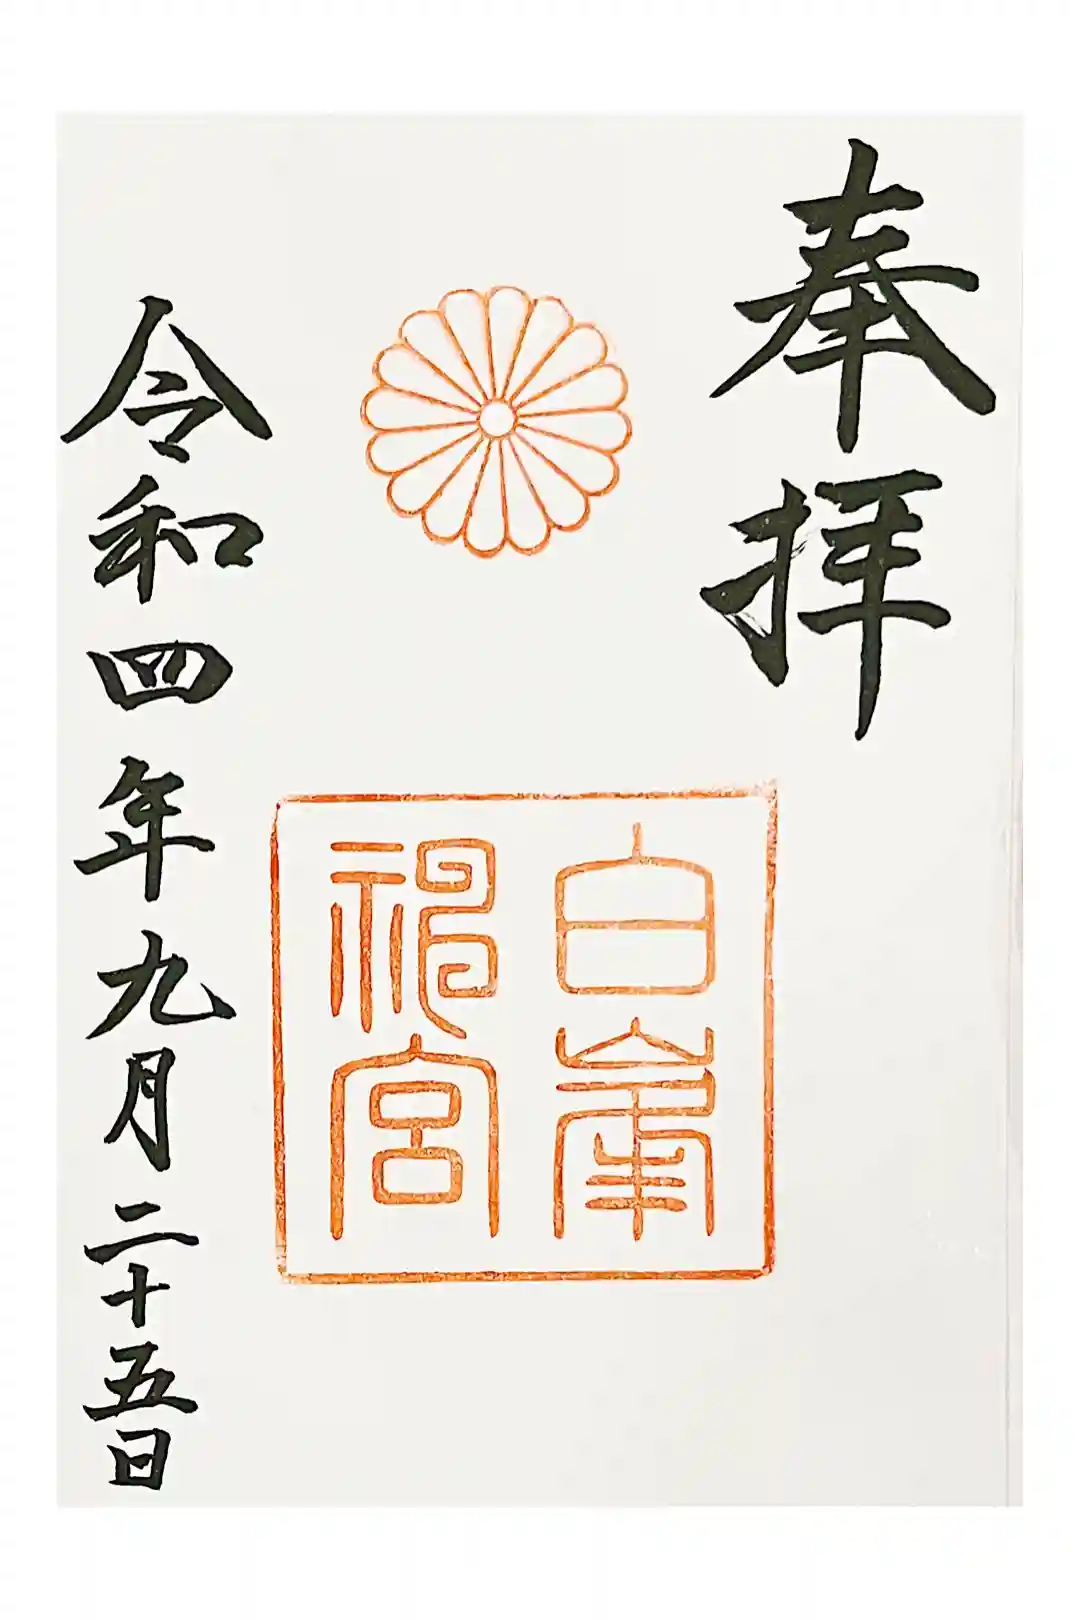 奉拝
白峯
神宮
令和四年九月二十五日